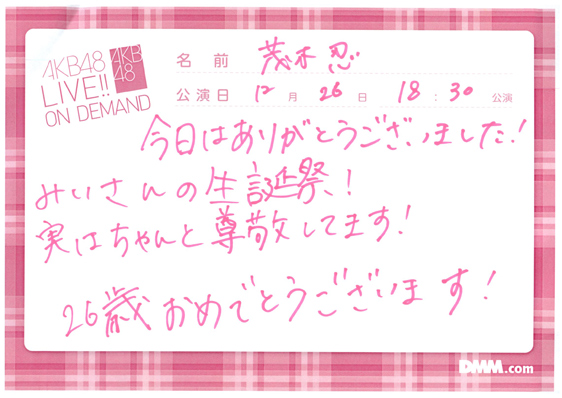 AKB48
LIVE!!
ON DEMAND
AKB
48
名 前 茂木忍
公演日 12 月 26 日 18 : 30 公演
今日はありがとうございました!
みぃさんの生誕祭!
実はちゃんと尊敬してます!
26歳おめでとうございます!
DMM.com